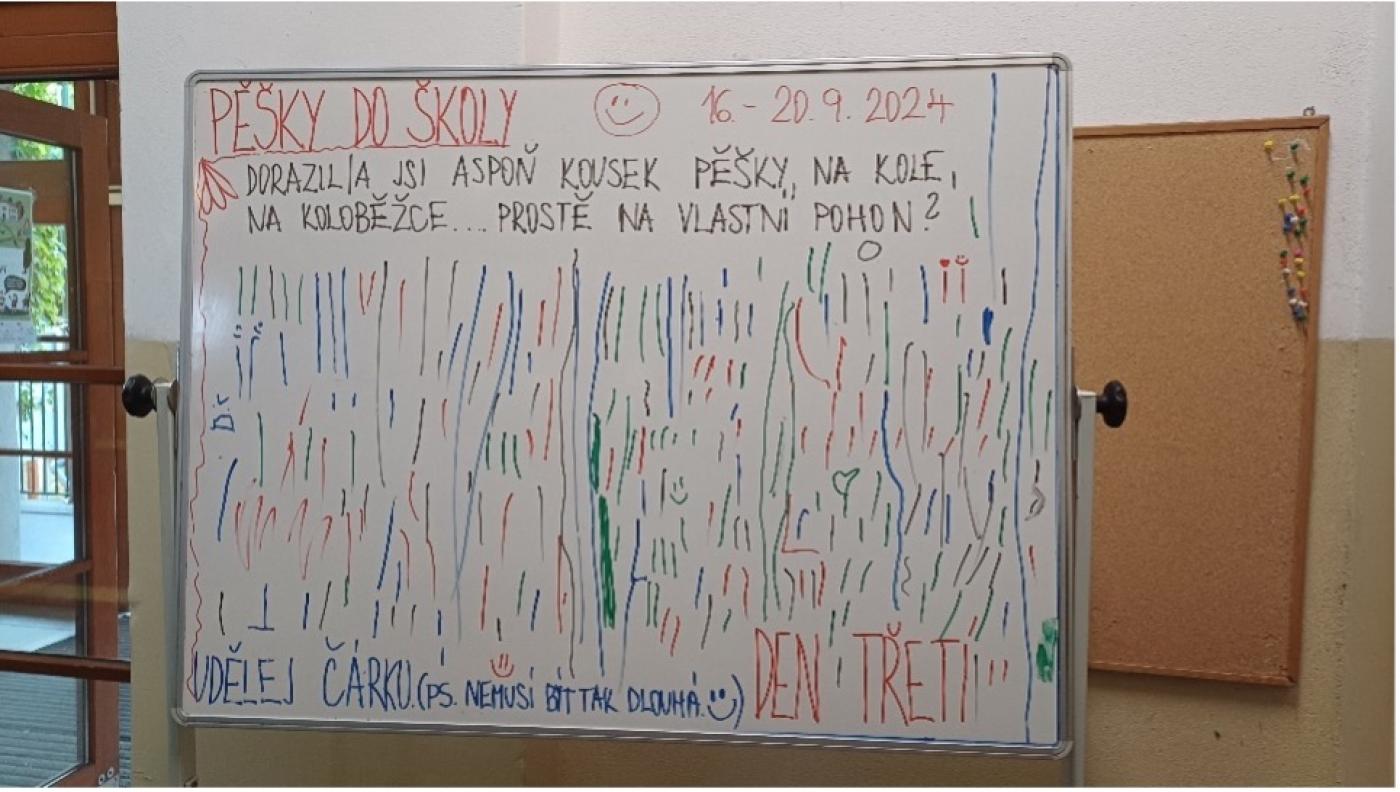 PĚŠKY DO ŠKOLY 16. - 20. 9. 2024
DORAZIL/A JSI ASPOŇ KOUSEK PĚŠKY, NA KOLE,
NA KOLOBĚŽCE... PROSTĚ NA VLASTNÍ POHON?
UDĚLEJ ČÁRKU. (PS. NEMUSÍ BÍT TAK DLOUHÁ.) DEN TŘETÍ